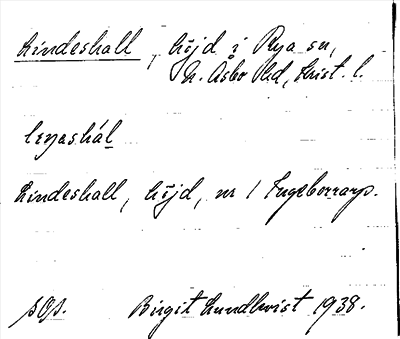 Lindeshall, höjd i Rya sn,
N. Åsbo hd, Krist. l.
Lindeshall, höjd, nr 1 Ingeborrarp.
sOp. Birgit Lundkvist 1938.